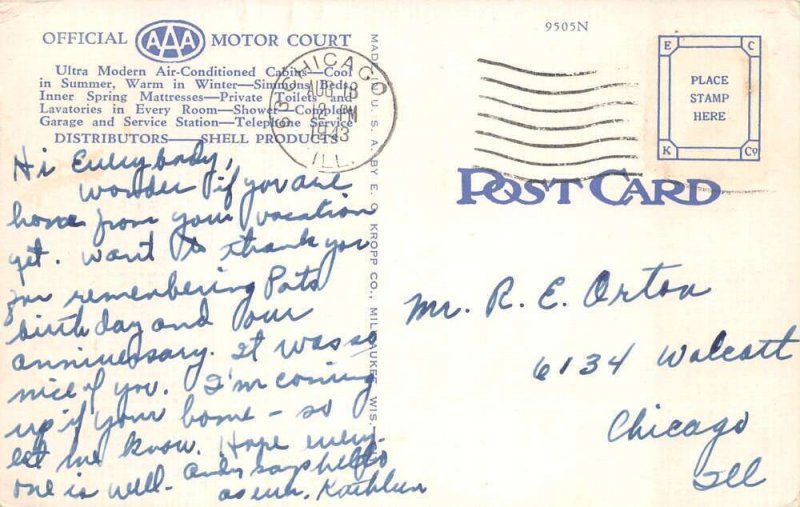 OFFICIAL AAA MOTOR COURT
Ultra Modern Air-Conditioned Cabins—Cool
in Summer, Warm in Winter—Simmons Beds
Inner Spring Mattresses—Private Toilets and
Lavatories in Every Room—Shower—Complete
Garage and Service Station—Telephone Service
DISTRIBUTORS—SHELL PRODUCTS
Hi Everybody,
Wonder if you are
home from your vacation
yet. Want to thank you
for remembering Pats
birthday and our
anniversary. It was so
nice of you. I'm coming
up if your home – so
let me know. Hope every-
one is well – Andy says hello
as ever, Kathleen
MADE IN U. S. A. BY E. C. KROPP CO., MILWAUKEE, WIS.
CHICAGO
AUG 18
12 PM
1943
ILL.
9505N
E C
PLACE
STAMP
HERE
K Co
POST CARD
Mr. R. E. Orton
6134 Walcott
Chicago
Ill